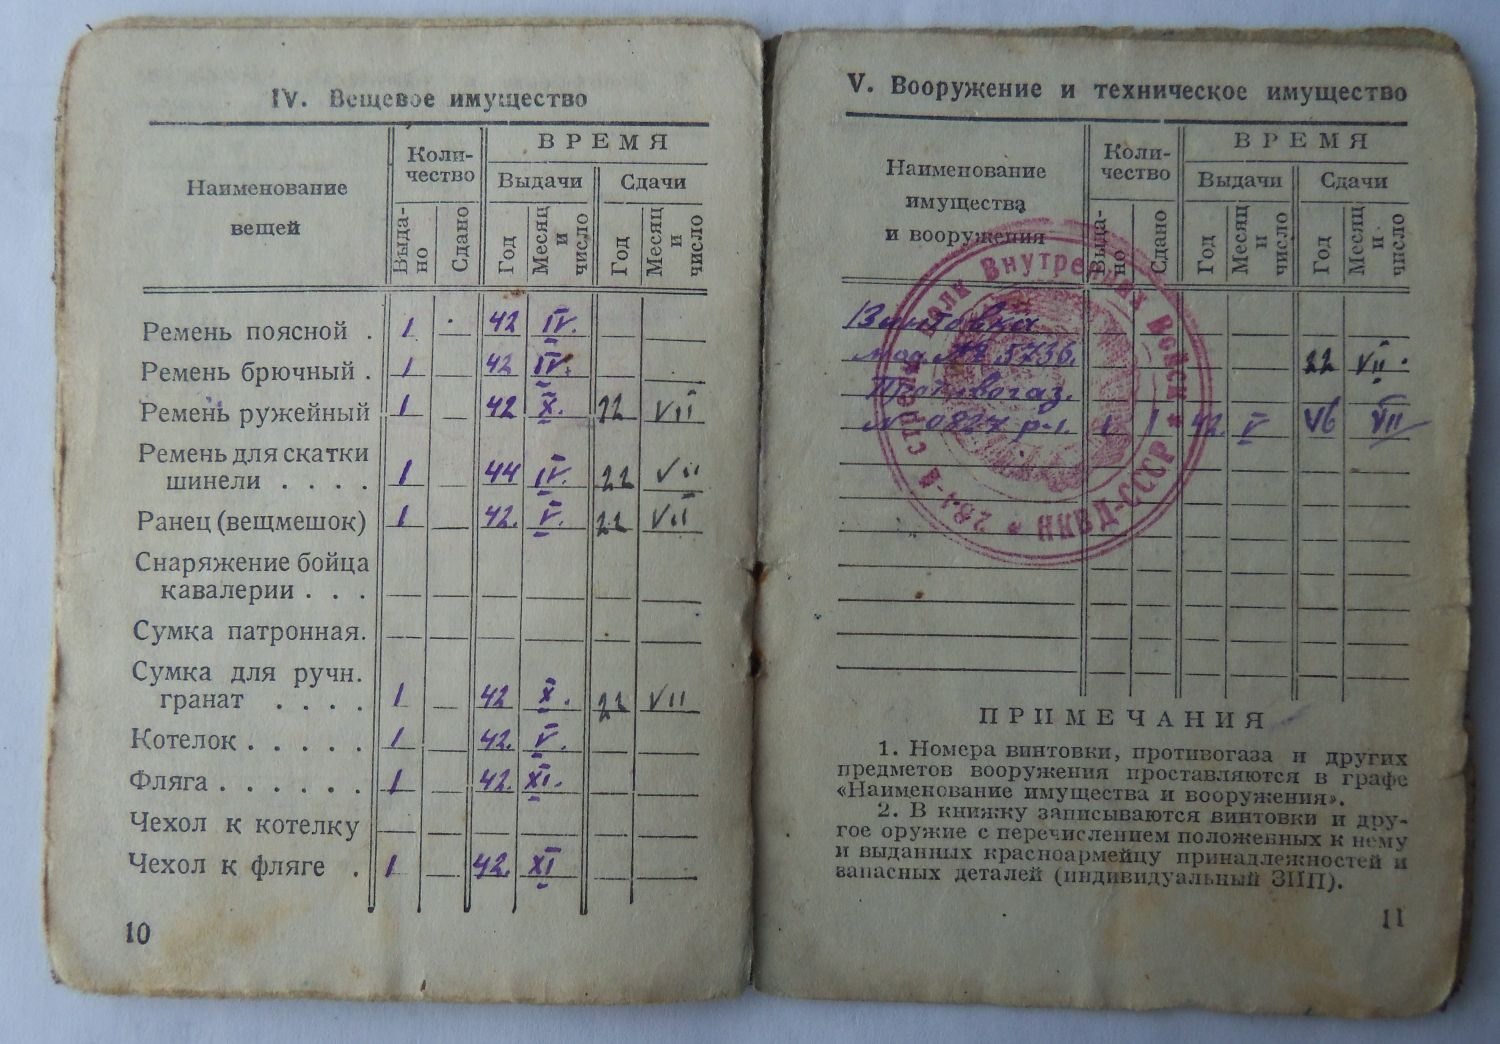 IV. Вещевое имущество
Наименование вещей
Коли-
чество
ВРЕМЯ
Выдачи Сдачи
Выда-
но
Сдано
Год
Месяц и число
Год
Месяц и число
Ремень поясной . 1 42 IV.
Ремень брючный . 1 — 42 IV.
Ремень ружейный 1 — 42 X. 22 VII
Ремень для скатки
шинели . . . . 1 — 44 IV. 22 VII
Ранец (вещмешок) 1 — 42. V. 22 VII
Снаряжение бойца
кавалерии . . .
Сумка патронная.
Сумка для ручн.
гранат . . . . 1 — 42 X. 22 VII
Котелок . . . . . 1 — 42. V.
Фляга . . . . . . 1 — 42. XI.
Чехол к котелку
Чехол к фляге . 1 — 42. XI
10
V. Вооружение и техническое имущество
Наименование
имущества
и вооружения
Коли-
чество
ВРЕМЯ
Выдачи Сдачи
Выда-
но
Сдано
Год
Месяц и число
Год
Месяц и число
Винтовка
№ 5736. 22 VII.
Противогаз.
№ 0827 р-1. 1 1 42. V VII
Полк Внутренних Войск * НКВД-СССР *
ПРИМЕЧАНИЯ
1. Номера винтовки, противогаза и других
предметов вооружения проставляются в графе
«Наименование имущества и вооружения».
2. В книжку записываются винтовки и дру-
гое оружие с перечислением положенных к нему
и выданных красноармейцу принадлежностей и
запасных деталей (индивидуальный ЗИП).
11